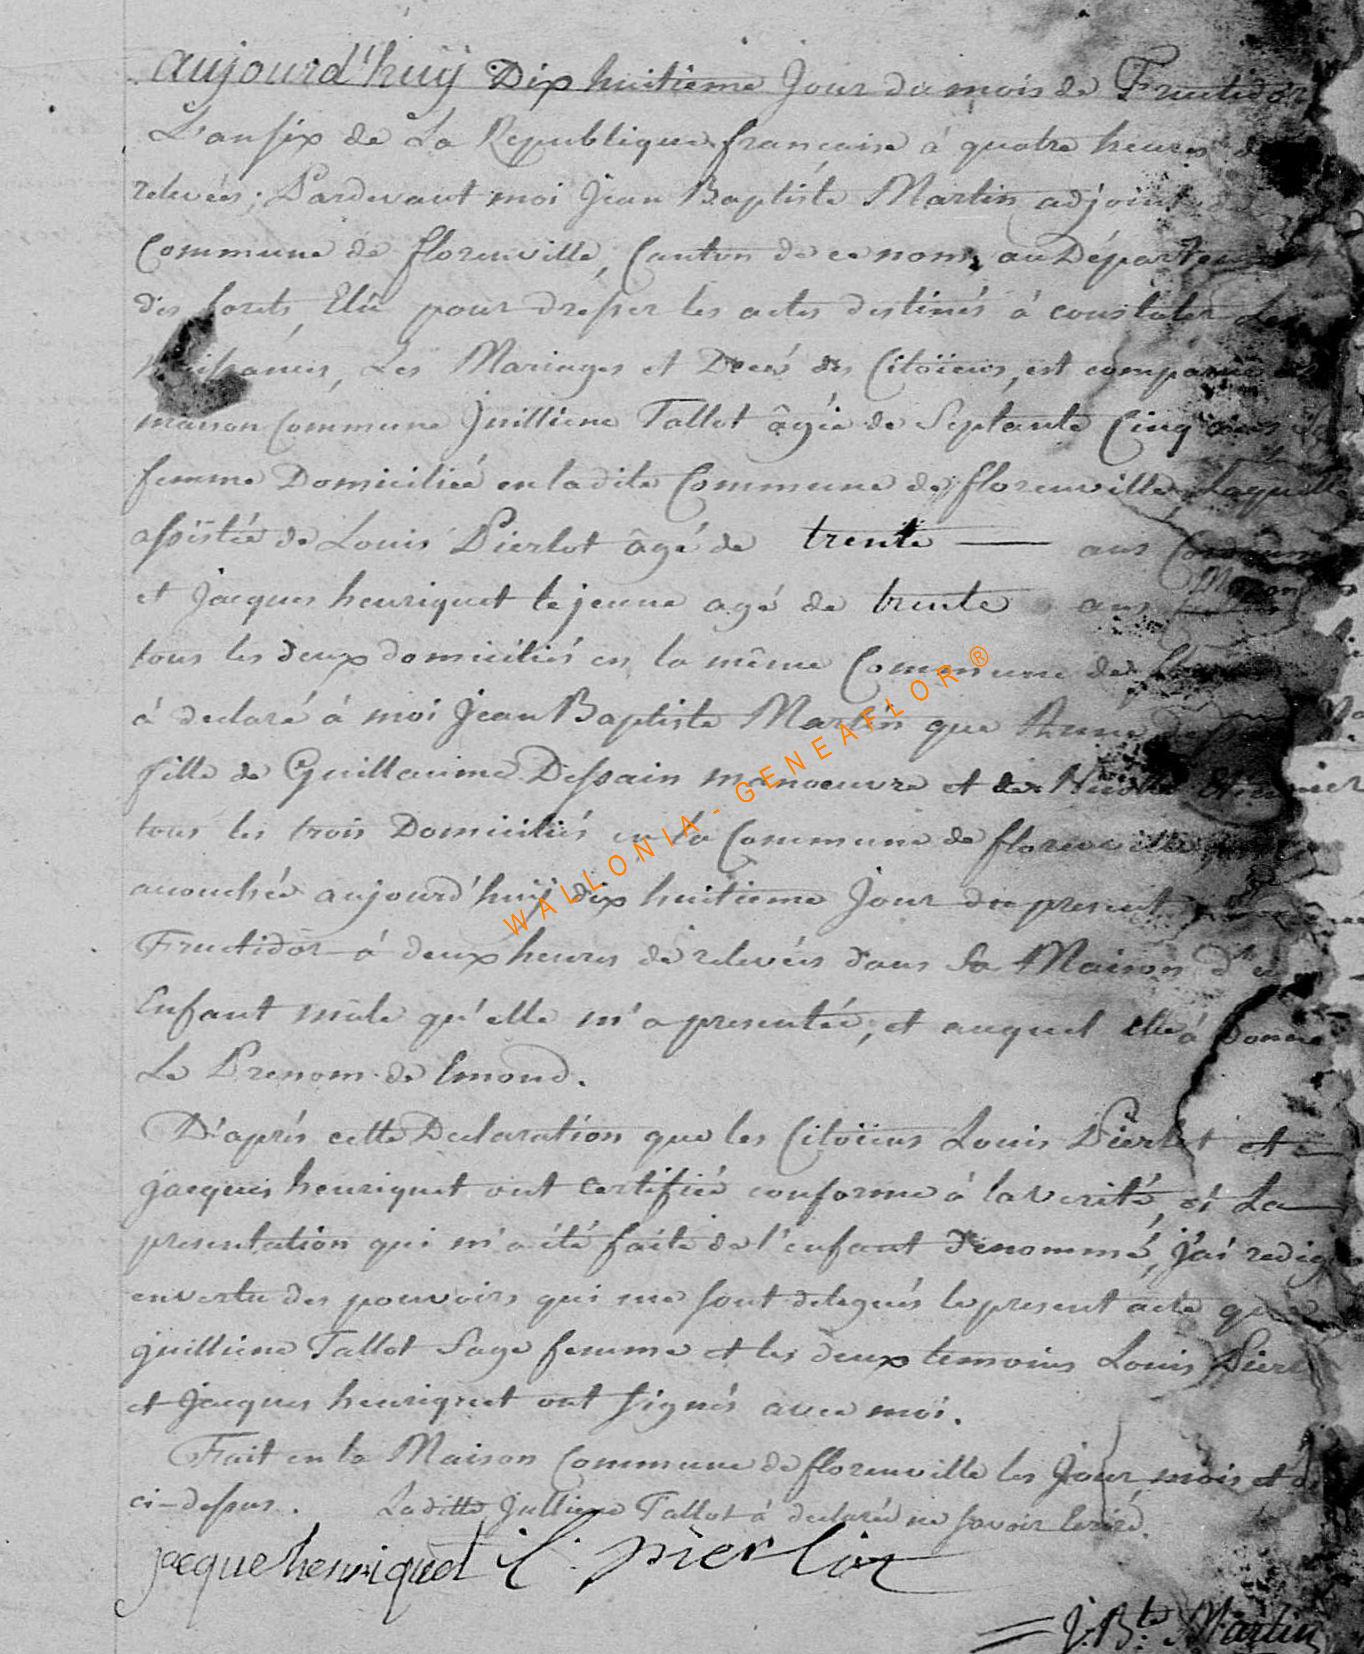 aujourd'huÿ Dix huitieme Jour du mois de Fructidor
L'an six de La Republique francaise à quatre heures de
relevées; Pardevant moi Jean Baptiste Martin adjoint
Commune de florenville, Canton de ce nom, au Département
des forets, Elû pour dresser les actes destinés à constater Les
Naissances, Les Mariages et Decés des Citoïens, est comparue
maison Commune Juilliene Tallot âgée de Septante Cinq
femme Domiciliée en ladite Commune de florenville, Laquelle
assistée de Louis Pierlot âgé de trente — ans
et Jacques henriquet le jeune agé de trente ans
tous les deux domiciliés en la même Commune de
à declaré à moi Jean Baptiste Martin que Anne
fille de Guillaume Dessain manoeuvre et de
tous les trois Domiciliés en la Commune de florenville
accouchée aujourd'huÿ dix huitieme Jour du present
Fructidor à deux heures de relevées dans sa Maison d'un
Enfant mâle qu'elle m'a presentée, et auquel elle à donné
Le Prenom de Emond.
D'après cette Declaration que les Citoïens Louis Pierlot et
jacques henriquet ont certifiée conforme à la verité, et La
presentation qui m'a été faite de l'enfant denommé, j'ai redigé
en vertu des pouvoirs qui me sont delegués le present acte que
juilliene Tallot Sage femme et les deux temoins Louis Pierlot
et Jacques henriquet ont signés avec moi.
Fait en la Maison Commune de florenville les Jour mois et
ci-dessus. Laditte Julliene Tallot à declarée ne savoir
jacque henriquet l. pierlot
J. Bte Martin
WALLONIA - GENEAFLOR ®